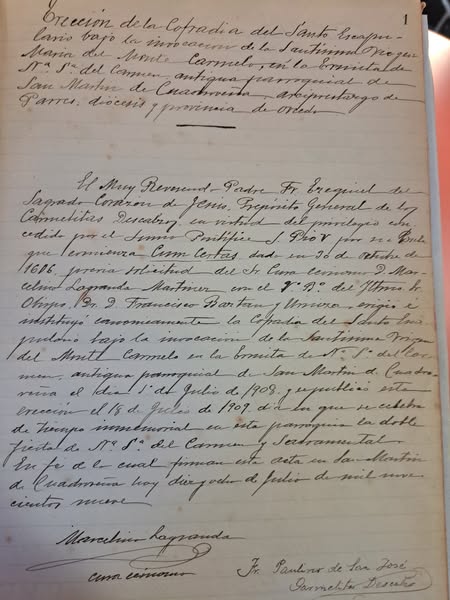 1
Erección de la Cofradia del Santo Escapu-
lario bajo la invocacion de la Santisima Virgen
Maria del Monte Carmelo, en la Ermita de
Nª Sª del Carmen, antigua parroquial de
San Martin de Cuadroveña, arciprestazgo de
Parres, diócesis y provincia de Oviedo
El Muy Reverendo Padre Fr. Ezequiel del
Sagrado Corazón de Jesús, Prepósito General de los
Carmelitas Descalzos, en virtud del privilegio con-
cedido por el Sumo Pontifice S. Pio V por su Bula
que comienza Cum certas, dado en 30 de octubre de
previa solicitud del Sr. Cura ecónomo D. Mar-
celino Lagranda Martinez con el Vº Bº del Iltmo Sr.
Obispo, Dr. D. Francisco Baztan y Urniza, erigió é
instituyó canonicamente la Cofradia del Santo Esca-
pulario bajo la invocacion de la Santisima Virgen
del Monte Carmelo en la Ermita de Nª Sª del Car-
men, antigua parroquial de San Martin de Cuadro-
veña el dia 1º de Julio de 1908, y se publicó esta
erección el 18 de Julio de 1909, dia en que se celebra
de tiempo inmemorial en esta parroquia la doble
fiesta de Nª Sª del Carmen y Sacramental.
En fe de lo cual firman esta acta en San Martin
de Cuadroveña hoy diez y ocho de Julio de mil nove-
cientos nueve
Marcelino Lagranda
cura ecónomo
Fr. Paulino de San José
Carmelita Descalzo